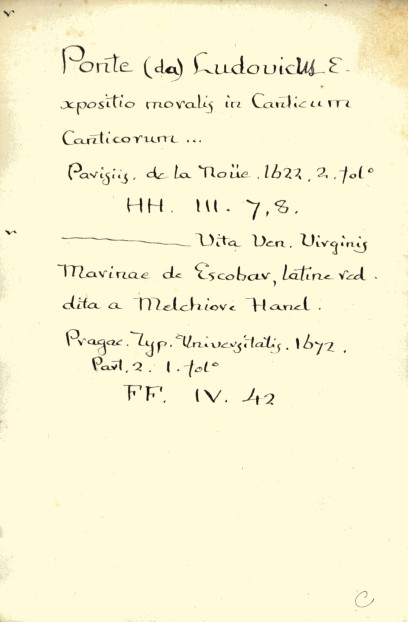 Ponte (da) Ludovicus E-
xpositio moralis in Canticum
Canticorum ...
Parisiis. de la Noüe. 1622. 2. folº
HH. III. 7, 8.
——— Vita Ven. Virginis
Marinae de Escobar, latine red-
dita a Melchiore Hanel.
Pragae. Typ. Universitatis. 1672.
Part. 2. 1. folº
FF. IV. 42
C